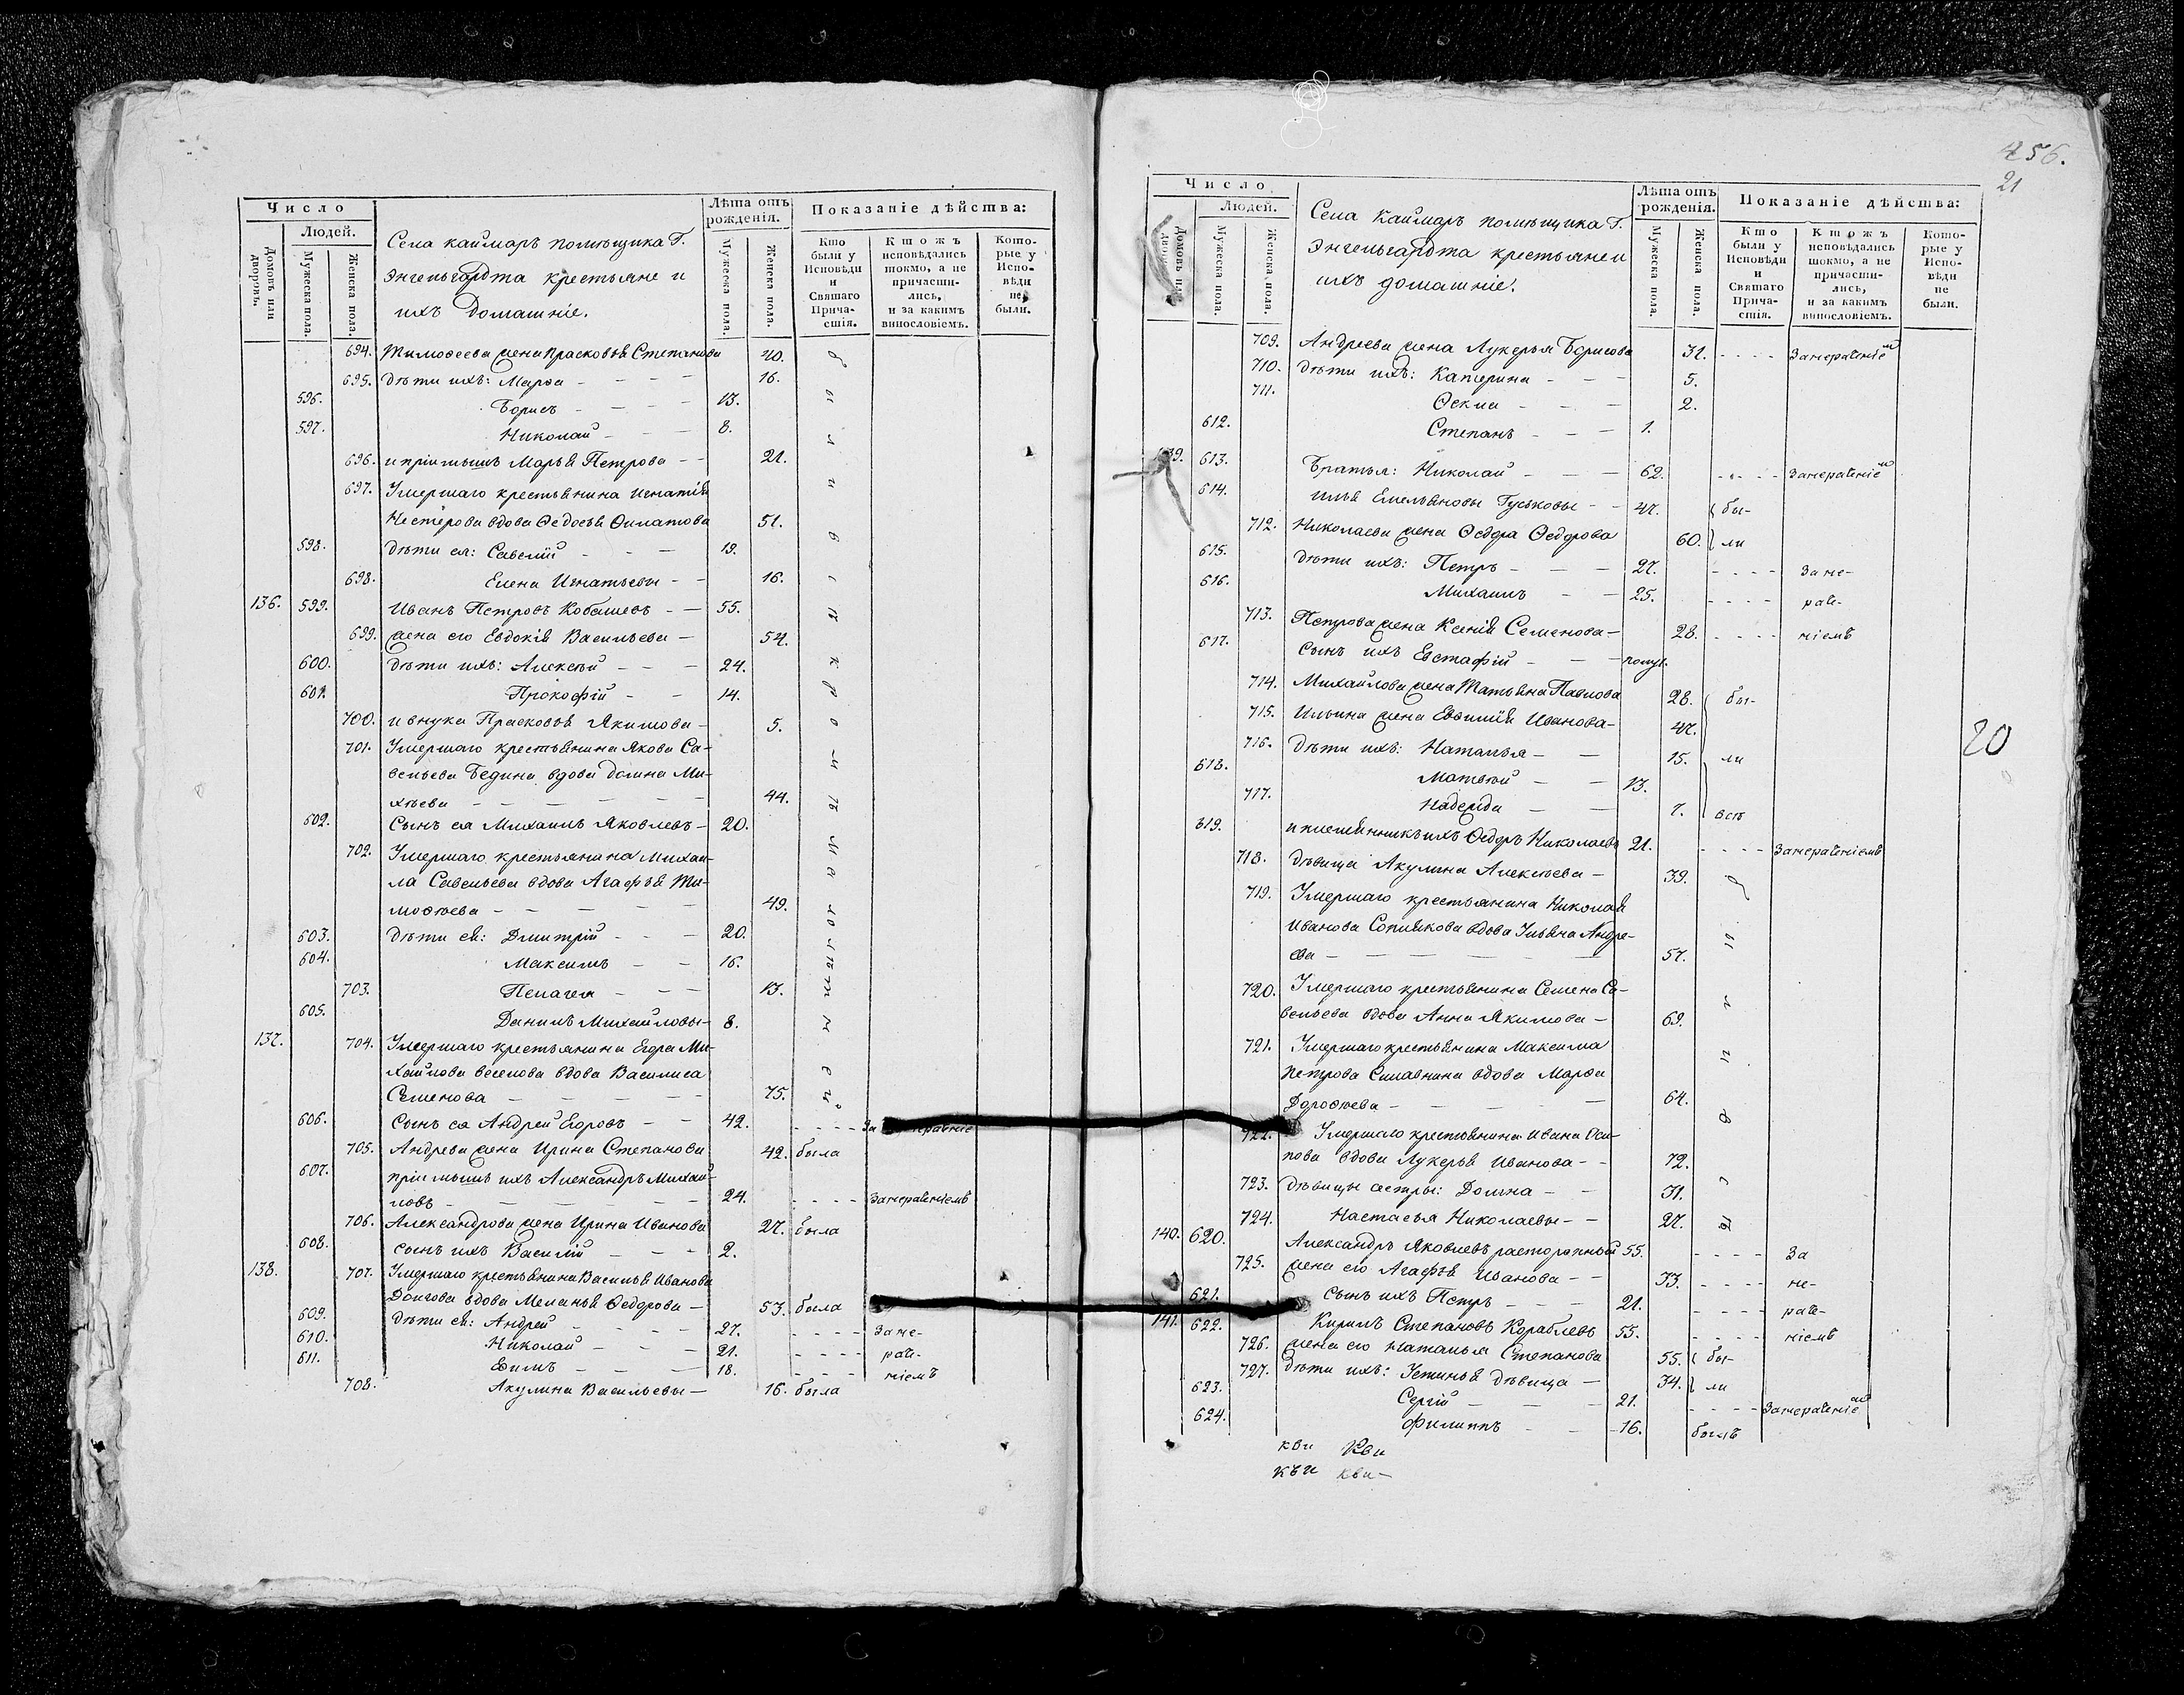 Число
Людей.
Домовъ или дворовъ.
Мужеска пола.
Женска пола.
Села каймаръ помѣщика Г.
Энгельгардта крестьяне и
ихъ домашніе.
Лѣта отъ рожденія.
Мужеска пола.
Женска пола.
Показаніе дѣйства:
Кто были у Исповѣди и Святаго Причастія.
Ктожъ исповѣдались токмо, а не причастились, и за какимъ винословіемъ.
Которые у Исповѣди не были.
694. Тимофеева жена Прасковья Степанова 40.
695. дѣти ихъ: Марѳа - - - 16.
596. Борисъ - - - 13.
597. Николай - - - 8.
696. и пріимышъ Марья Петрова - - 21.
697. Умершаго крестьянина Игнатія
Нестерова вдова Ѳедосья Филатова 51.
598. дѣти ея: Савелій - - - 19.
698. Елена Игнатьевы - - 16.
136. 599. Иванъ Петровъ Кобашевъ - - 55.
699. жена его Евдокія Васильева - 54.
600. дѣти ихъ: Алексѣй - - - 24.
601. Прокофій - - 14.
700. и внука Прасковья Якимова - 5.
701. Умершаго крестьянина Якова Са-
вельева Бедина вдова Домна Ми-
хѣева - - - - - - 44.
602. Сынъ ея Михаилъ Яковлевъ - 20.
702. Умершаго крестьянина Михаи-
ла Савельева вдова Агафья Ти-
моѳѣева - - - - - 49.
603. Дѣти ея: Дмитрій - - - 20.
604. Максимъ - - 16.
703. Пелагея - - - 13.
605. Данилъ Михайловы - 8.
137. 704. Умершаго крестьянина Егора Ми-
хайлова Веселова вдова Василиса
Семенова - - - - - 75.
606. Сынъ ея Андрей Егоровъ - - 42.
705. Андреева жена Ирина Степанова 42. была
607. пріимышъ ихъ Александръ Михай-
ловъ - - - - 24. - - - - Занераченіемъ
706. Александрова жена Ирина Иванова 27. была
608. сынъ ихъ Василій - - - 2.
138. 707. Умершаго крестьянина Василья Иванова
Долгова вдова Меланья Ѳедорова - 53. была
609. дѣти ея: Андрей - - - 27. - - - - Зане-
610. Николай - - - 21. - - - - раче-
611. Евимъ - - - 18. - - - - ніемъ
708. Акулина Васильевы - 16. была
456.
21
Число
Людей.
Домовъ или дворовъ.
Мужеска пола.
Женска пола.
Села Каймаръ помѣщика Г.
Энгельгардта крестьяне и
ихъ домашніе.
Лѣта отъ рожденія.
Мужеска пола.
Женска пола.
Показаніе дѣйства:
Кто были у Исповѣди и Святаго Причастія.
Ктожъ исповѣдались токмо, а не причастились, и за какимъ винословіемъ.
Которые у Исповѣди не были.
709. Андреева жена Лукерья Борисова 31. - - - - Занераченіемъ
710. дѣти ихъ: Катерина - - - 5.
711. Ѳекла - - - 2.
612. Степанъ - - - 1.
139. 613. Братья: Николай - - - 62. - - - - Занераченіемъ
614. Илья Емельяновы Гуськовы - - 47. бы-
712. Николаева жена Ѳедора Ѳедорова 60. ли
615. дѣти ихъ: Петръ - - - 27. - - - - Зане-
616. Михаилъ - - 25. - - - - раче-
713. Петрова жена Ксенія Семенова - 28. - - - - ніемъ
617. Сынъ ихъ Евстафій - - - полуг.
714. Михайлова жена Татьяна Павлова 28. бы-
715. Ильина жена Евѳимія Иванова - 47.
716. Дѣти ихъ: Наталья - - 15. ли
618. Матвѣй - - 13.
717. Надежда - - 7. всѣ
619. и племянникъ ихъ Ѳедоръ Николаевъ 21. - - - - Занераченіемъ
718. дѣвица Акулина Алексѣева - 39.
719. Умершаго крестьянина Николая
Иванова Сопшкова вдова Ульяна Андре-
ева - - - - - - 57.
720. Умершаго крестьянина Семена Са-
вельева вдова Анна Якимова - 69.
721. Умершаго крестьянина Максима
Петрова вдова Марѳа
Дороѳѣева - - - - - 64.
722. Умершаго крестьянина Ивана Оси-
пова вдова Лукерья Иванова - - 72.
723. Дѣвицы сестры: Домна - - 31.
724. Настасья Николаевы - - 27.
140. 620. Александръ Яковлевъ расторопный 55. - - - - За
725. жена его Агафья Иванова - - 53. - - - - не-
621. сынъ ихъ Петръ - - - 21. - - - - раче-
141. 622. Кирилъ Степановъ Кораблевъ 55. - - - - ніемъ
726. жена его Наталья Степанова 55. бы-
727. дѣти ихъ: Устинья дѣвица - 34. ли
623. Сергій - - - 21. - - - - Занераченіемъ
624. Филиппъ - - - 16. былъ
кви Кви
къи кви-
20